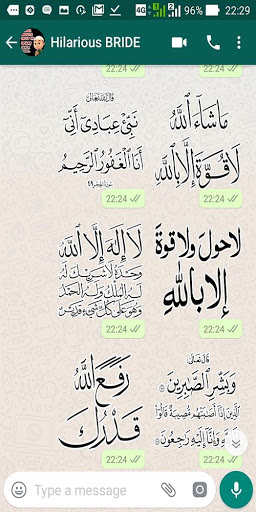 96% 22:29
Hilarious BRIDE
22:24
22:24
قال الله تعالى
نَبِّئْ عِبَادِي أَنِّي
أَنَا الْغَفُورُ الرَّحِيمُ
22:24
مَا شَاءَ اللَّهُ
لَا قُوَّةَ إِلَّا بِاللَّهِ
22:24
لَا إِلَهَ إِلَّا اللَّهُ
وحده لا شريك له
له الملك وله الحمد
وهو على كل شيء قدير
22:24
لا حول ولا قوة
إلا بالله
22:24
رفع الله
قدرك
22:24
قال تعالى
وَبَشِّرِ الصَّابِرِينَ
الَّذِينَ إِذَا أَصَابَتْهُمْ مُصِيبَةٌ قَالُوا
وَإِنَّا إِلَيْهِ رَاجِعُونَ
22:24
Type a message